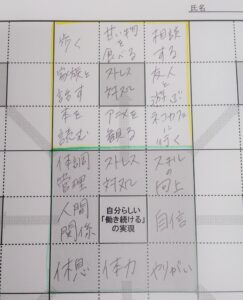 氏名
歩く
甘い物を食べる
相談する
家族と話す
ストレス対処
友人と遊ぶ
本を読む
アニメを観る
ネコカフェに行く
体調管理
ストレス対処
スキルの向上
人間関係
自分らしい
「働き続ける」
の実現
自信
休息
体力
やりがい